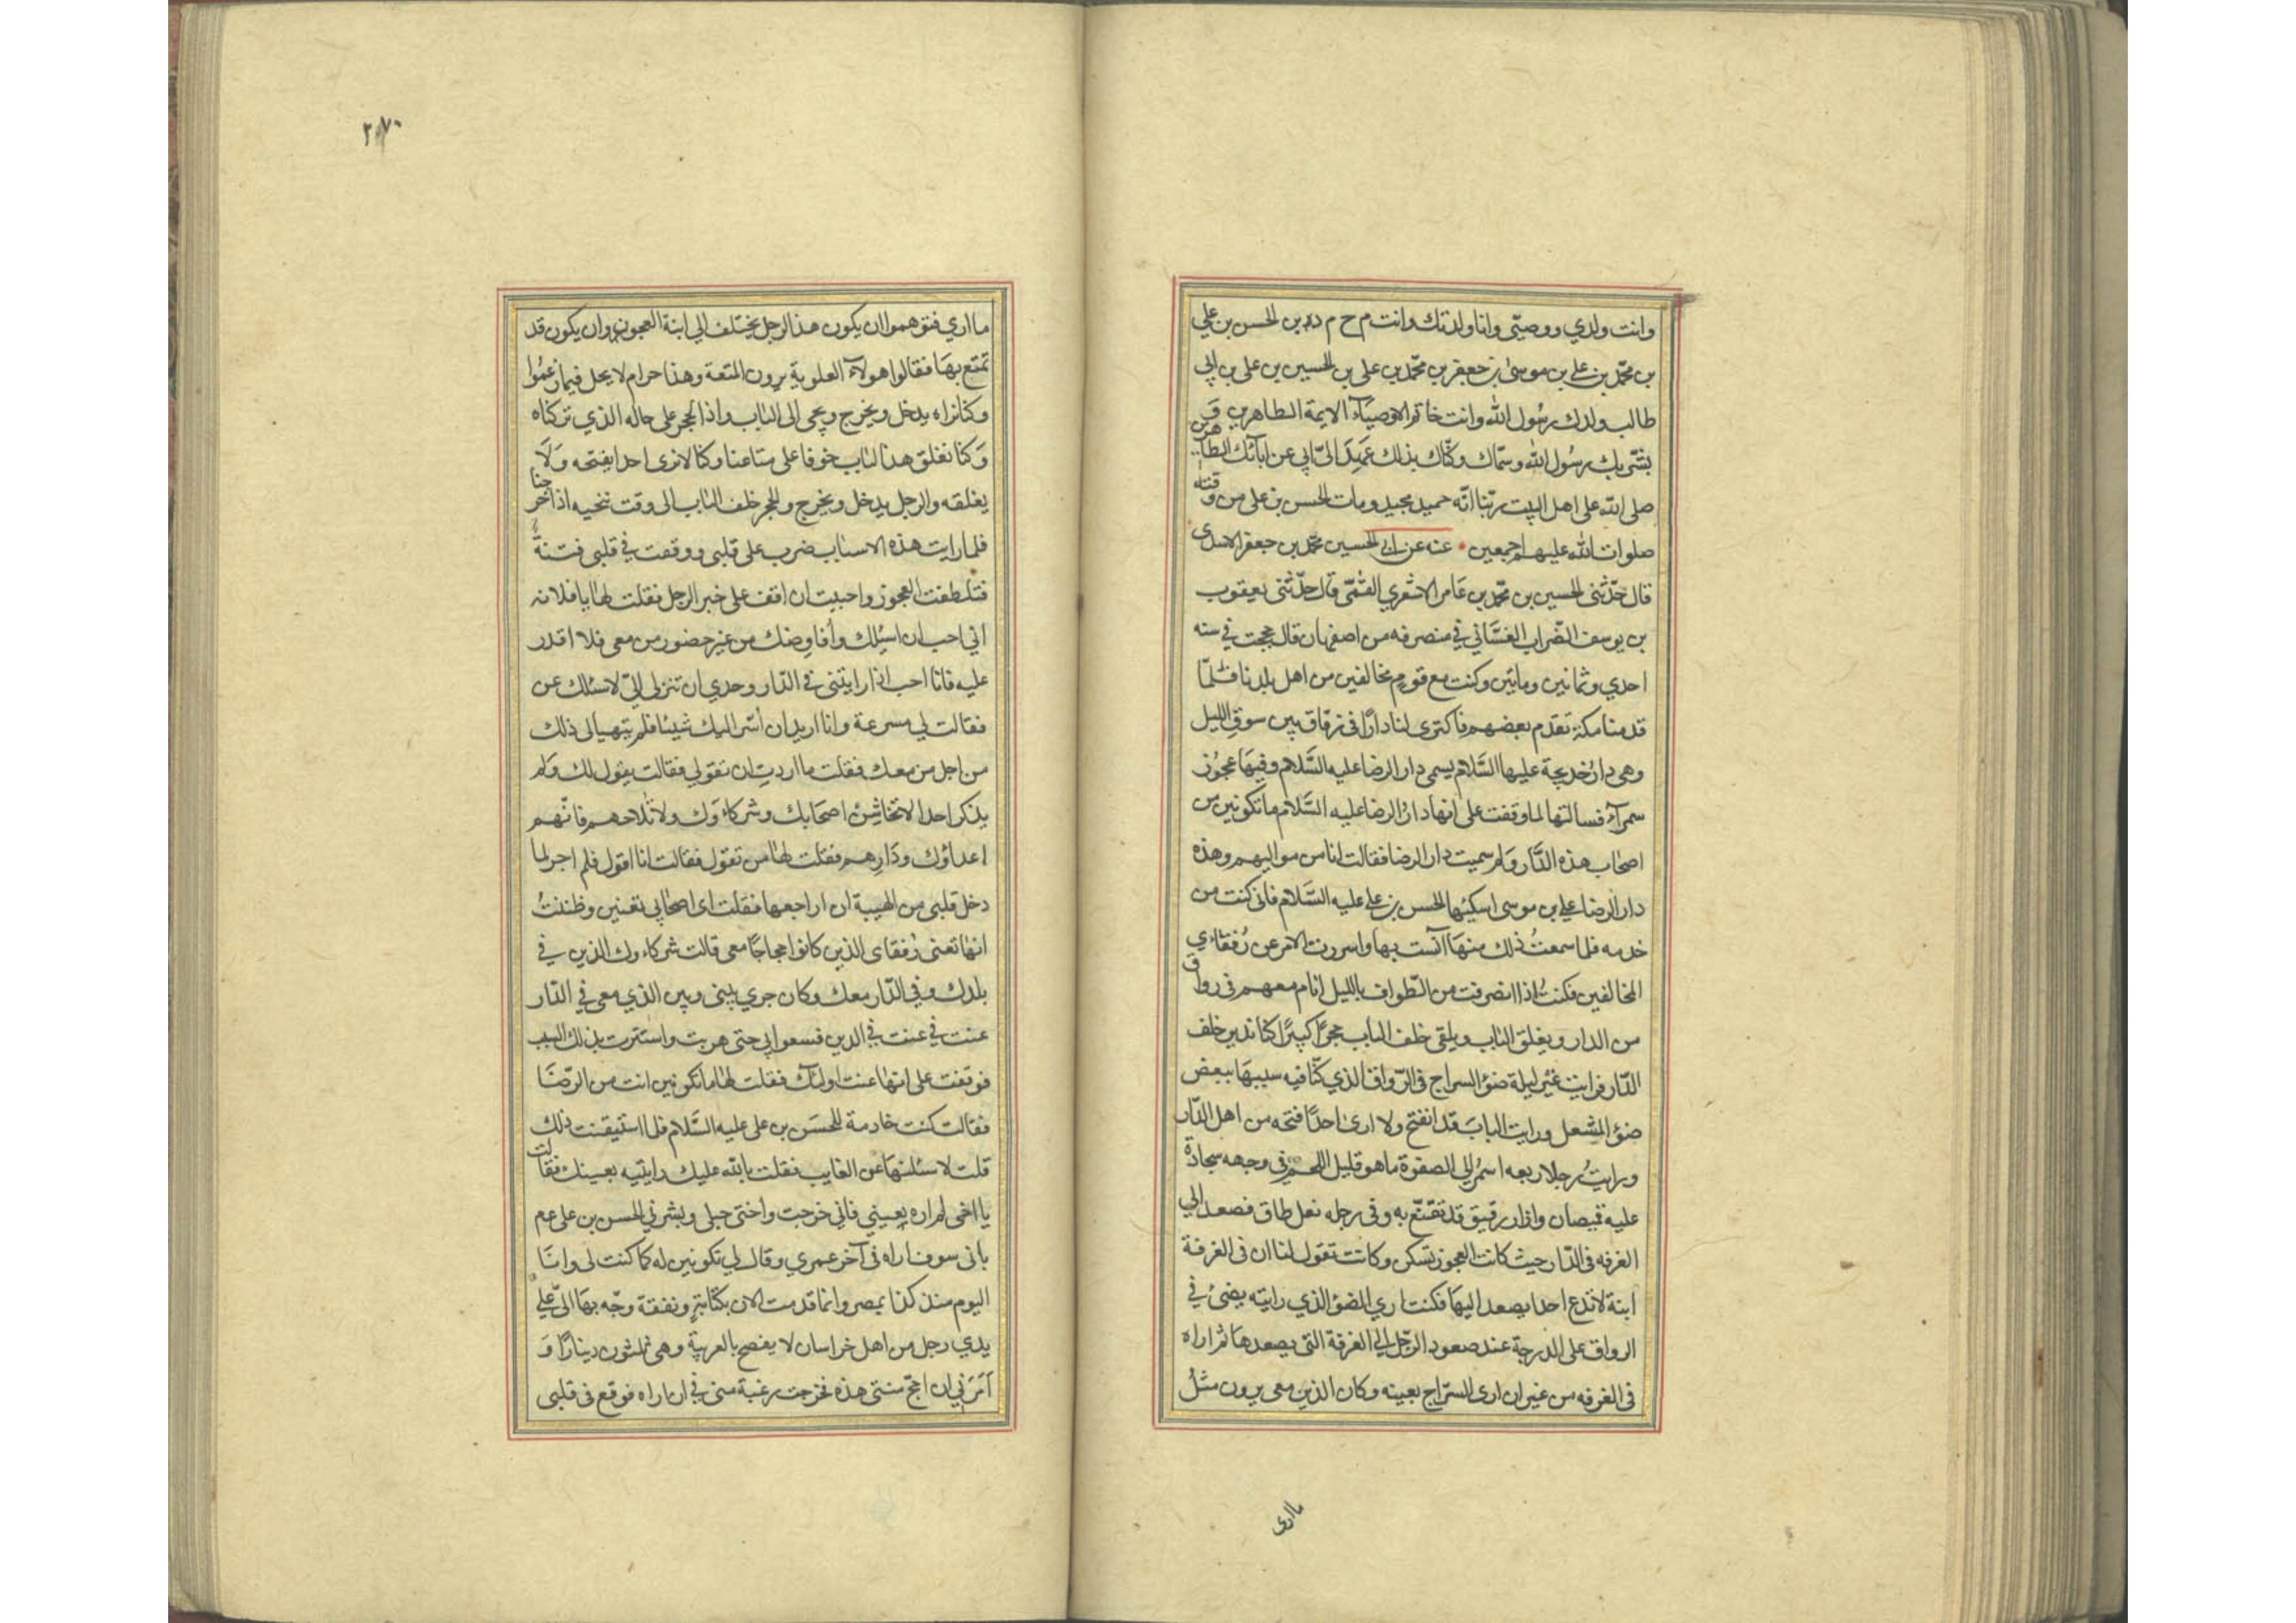 وانت ولدي ووصيّي وانا ولدتك وانت م ح م د بن الحسن بن علي
بن محمّد بن علي بن موسىٰ بن جعفر بن محمّد بن علي بن الحسين بن علي بن ابي
طالب ولدك رسُول الله وانت خاتم الاوصيآء الايمة الطاهرين وَ
بشّر بك رسُول الله وسمّاك وكنّاك بذلك عَهِدَ اليّ ابي عن ابآئك الطاهرين
صلى الله على اهل البيت ربّنا انّه حميد مجيد ومات الحسن بن علي من وقته
صلوات الله عليهم اجمعين عنه عن ابي الحسين محمّد بن جعفر الاسدى
قال حدّثنى الحسين بن محمّد بن عَامر الاشعري القمّى قال حدّثنى يعقوب
بن يوسف الضّراب الغسّاني في منصرفه من اصفهان قال حججت في سنه
احدي وثمانين ومايتين وكنت مع قومٍ مخالفين من اهل بلدنا فلمّا
قدمنا مكة تقدم بعضهم فاكترى لنا دارًا فى زقاق بين سوق الليل
وهى دارُ خديجة عليها السَّلام يسمى دار الرضا عليه السَّلام وفيهَا عجُوز
سمرآء فسالتها لما وقفت على انها دارُ الرضا عليه السَّلام ما تكونين من
اصحاب هذه الدَّار وَلم سميت دار الرضا فقالت انا من مواليهم وهذه
دار الرضا علي بن موسى اسكنيها الحسن بن علي عليه السَّلام فانى كنت من
خدمه فلما سمعتُ ذلك منهَا آنست بها واسررت الامر عن رُفقاءي
المخالفين فكنتُ اذا انصرفت من الطّواف بالليل انام معهم فى رواق
من الدار ويغلق الباب ويلقى خلف الباب حجرًا كبيرًا كنّا ندير خلف
الدّار فرايت غير ليلة ضوُ السراج فى الرّواق الذي كنّا فيه سبيهَا ببعض
ضوُ المشعل ورايت البابَ قد انفتح ولا ارىٰ احدًا فتحه من اهل الدّار
ورايتُ رجلا ربعه اسمرُ الى الصفرة ما هو قليل اللحم فى وجهه سجادة
عليه قميصان وازار رقيق قد تقنّع به وفى رجله نعل طاق فصعد الي
الغرفه فى الدّار حيث كانت العجوز تسكن وكانت تقول لنا ان فى الغرفة
ابنة لا تدع احدا يصعد اليهَا فكنت اري الضوُ الذي رايته يضئُ في
الرواق على الدرجة عند صعود الرّجل الي الغرفة التى يصعدهَا ثم اراه
فى الغرفه من غير ان ارى السّراج بعينه وكان الذين معى يرون مثلُ
ما ارى
٢٠٧٠
ما اري فتوهموا ان يكون هذا الرجل يختلف الي ابنة العجوز وان يكون قد
تمتع بهَا فقالوا هولآء العلوية يرون المتعة وهذا حرام لا يحل فيما زعمُوا
وكنا نراه يدخل ويخرج ويجى الى الباب واذا الحجر على حاله الذي تركناه
وَكنا نغلق هذا الباب خوفا على متاعنا وكنا لا نرى احدا يفتحه وَلَا
يغلقه والرجل يدخل ويخرج والحجر خلف الباب الى وقت ننحيه اذا خرجنا
فلما رايت هذه الاسباب ضرب على قلبى ووقعت في قلبى فتنةً
فتلطفت العجوز واحببت ان اقف على خبر الرجل فقلت لها يا فلانه
اني احب ان اسئلك وأفاوِضك من غير حضور من معى فلا اقدر
عليه فانا احب اذا رايتنى فى الدّار وحدي ان تنزلى الىّ لاسئلك عن
فقالت لي مسرعة وانا اريد ان أسّر اليك شيئا فلم يتهيأ لى ذلك
من اجل من معك فقلت ما اردتِ ان تقولي فقالت يقول لك وَلم
يذكر احدا لا تخاشِن اصحَابك وشركاءَك ولا تلاحهم فانّهم
اعداؤك ودَارِهم فقلت لها من تقول فقالت انا اقول فلم اجر لما
دخل قلبى من الهيبة ان اراجعها فقلت اى اصحابي تعنين وظننتُ
انها تعنى رُفقاى الذين كانوا حجاجًا معى قالت شركاءوك الذين في
بلدك وفي الدّار معك وكان جري بينى وبين الذي معى في الدّار
عنت في عنت في الدين فسعوا بي حتى هربت واستترت بذلك السبب
فوقفت على انها عنت اولئك فقلت لها ما تكونين انت من الرّضَا
فقالت كنت خادمة للحسَن بن على عليه السَّلام فلما استيقنت ذلك
قلت لاسئلنهَا عن الغايب فقلت بالله عليك رايتيه بعينك فقالت
يا اخى لم اره بعيني فانى خرجت واختى حبلى وبشرني الحسن بن على عم
بانى سوف اراه فى آخر عمري وقال لي تكونين له كما كنت لى وانَا
اليوم منذ كذا بمصر وانما قدمت الان بكتابةٍ ونفقة وجّه بهَا الىّ علي
يدي رجل من اهل خراسان لا يفصح بالعربية وهى ثلثون دينارًا وَ
اَمَرَنى ان احجّ سنتى هذه فخرجت رغبة منى في ان اراه فوقع فى قلبى